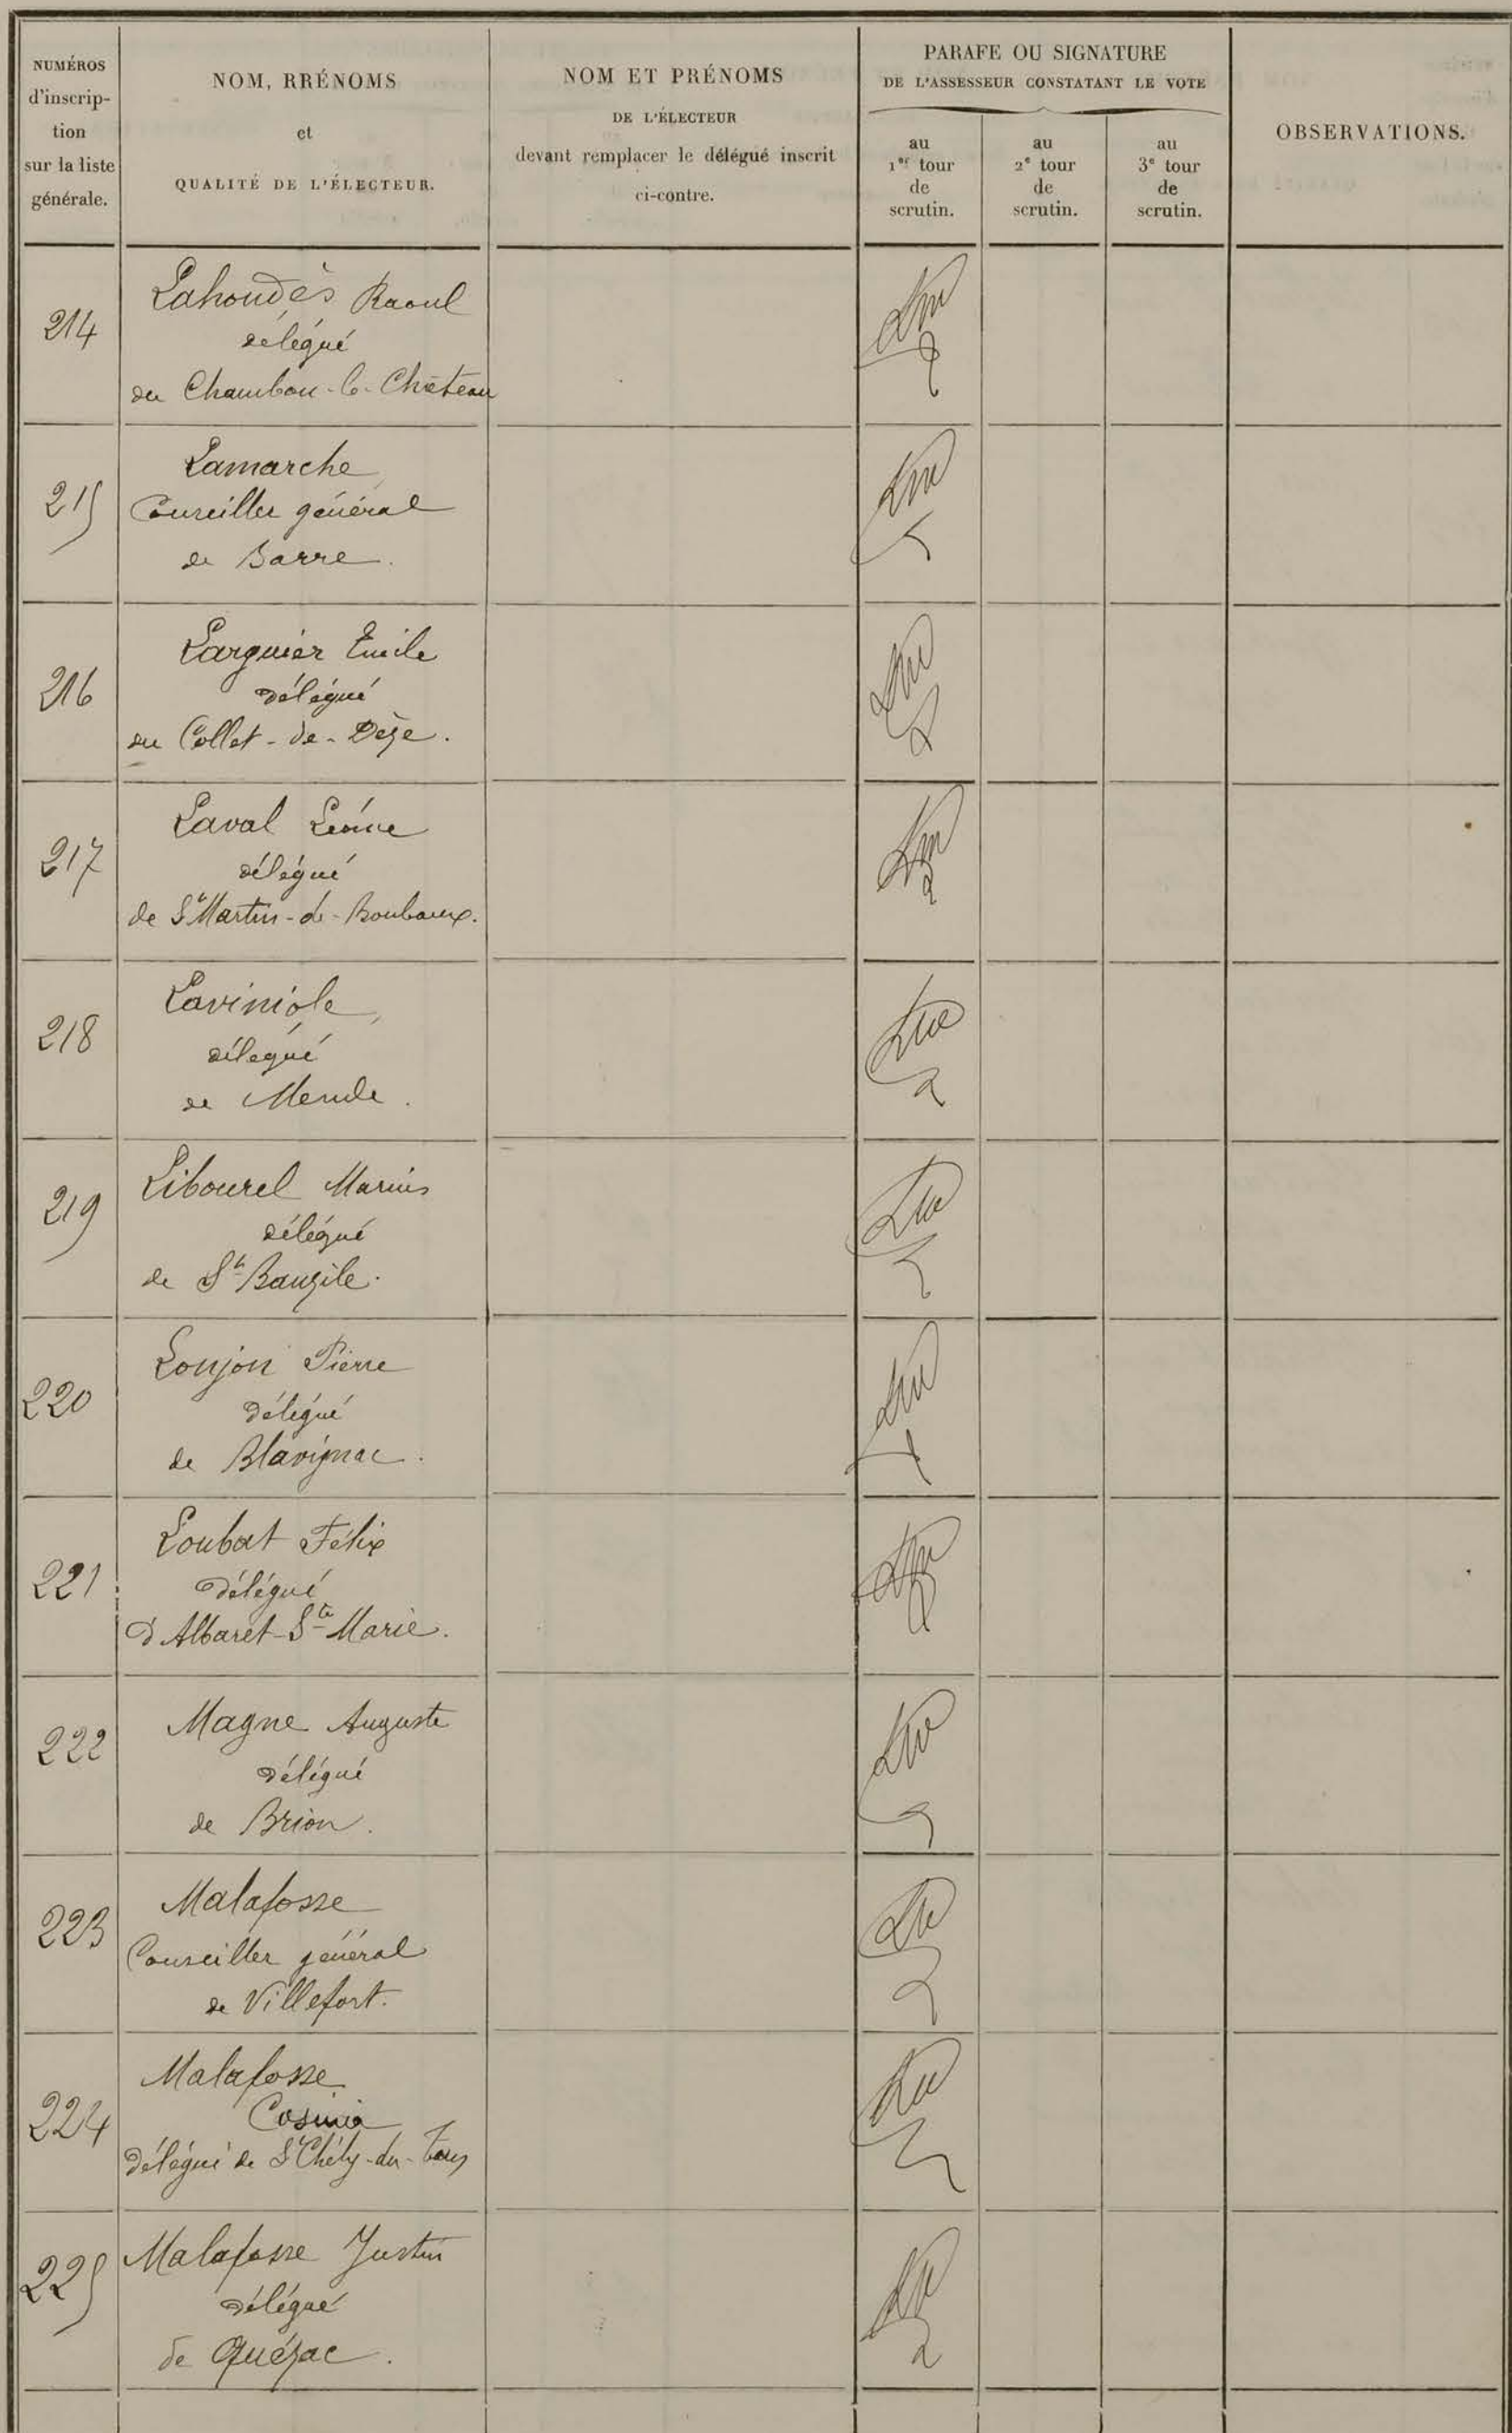 NUMÉROS
d'inscrip-
tion
sur la liste
générale.
NOM, RRÉNOMS
et
QUALITÉ DE L'ÉLECTEUR.
NOM ET PRÉNOMS
DE L'ÉLECTEUR
devant remplacer le délégué inscrit
ci-contre.
PARAFE OU SIGNATURE
DE L'ASSESSEUR CONSTATANT LE VOTE
au
1er tour
de
scrutin.
au
2e tour
de
scrutin.
au
3e tour
de
scrutin.
OBSERVATIONS.
214
Lahondès Raoul
délégué
du Chambon-le-Château
215
Lamarche
Conseiller général
de Barre.
216
Larguier Emile
délégué
du Collet-de-Dèze.
217
Laval
délégué
de St Martin-de-Boubaux.
218
Laviniole,
délégué
de Mende.
219
Libourel Marius
délégué
de St Bauzile.
220
Lonjon Pierre
délégué
de Blavignac.
221
Loubat Félix
délégué
d'Albaret-Ste Marie.
222
Magne Auguste
délégué
de Brion.
223
Malafosse
Conseiller général
de Villefort.
224
Malafosse
délégué de St Chély-du-Tarn
225
Malafosse Justin
délégué
de Quézac.